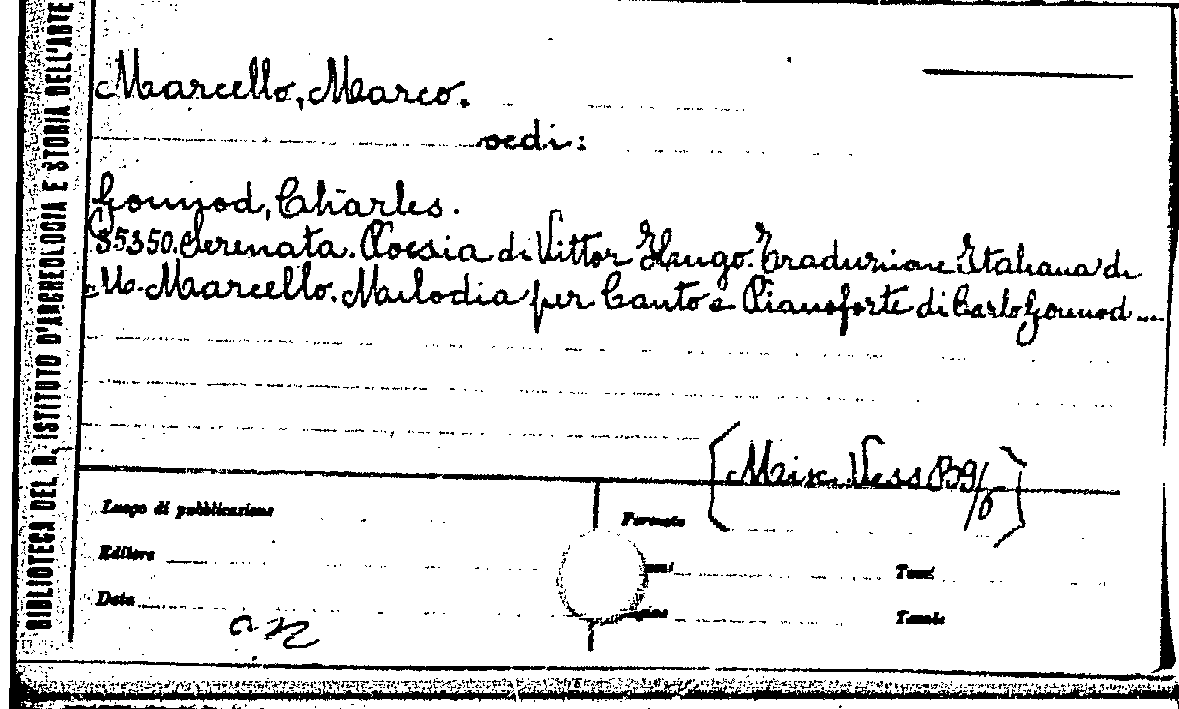 BIBLIOTECA DEL R. ISTITUTO D'ARCHEOLOGIA E STORIA DELL'ARTE
Marcello, Marco.
vedi:
Gounod, Charles.
35350. Serenata. Poesia di Vittor Hugo. Traduzione Italiana di
M. Marcello. Melodia per Canto e Pianoforte di Carlo Gounod ...
[Misc. Vess B9/6]
Luogo di pubblicazione
Formato
Editore
Tomi
Data
Tavole